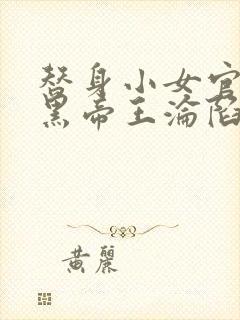 替身小女官
黑帝王淪陷
黃麗